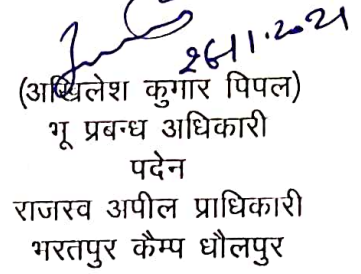 26/11.2021
(अखिलेश कुमार पिपल)
भू प्रबन्ध अधिकारी
पदेन
राजस्व अपील प्राधिकारी
भरतपुर कैम्प धौलपुर